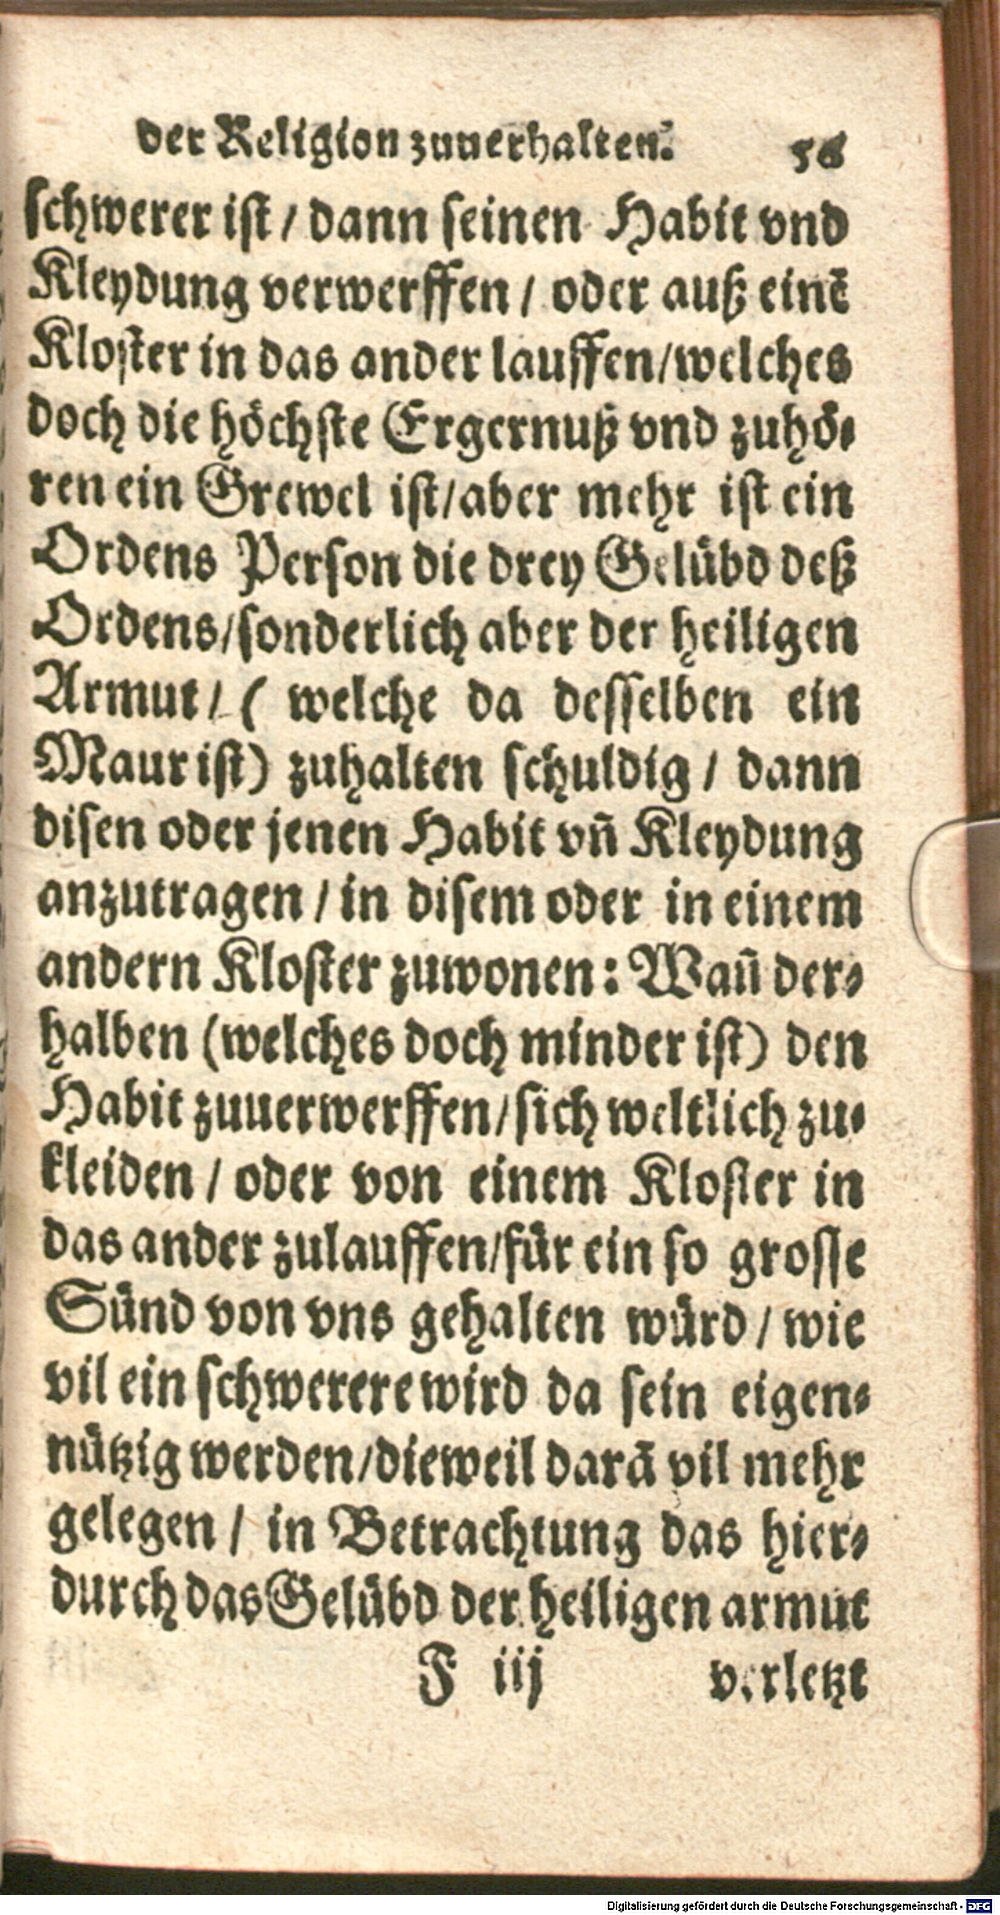 der Religion zuuerhalten. 56
schwerer ist / dann seinen Habit vnd
Kleydung verwerffen / oder auß einē
Kloster in das ander lauffen/welches
doch die höchste Ergernuß vnd zuhö-
ren ein Grewel ist/aber mehr ist ein
Ordens Person die drey Gelübd deß
Ordens/sonderlich aber der heiligen
Armut / ( welche da desselben ein
Maur ist) zuhalten schuldig / dann
disen oder jenen Habit vñ Kleydung
anzutragen / in disem oder in einem
andern Kloster zuwonen: Wañ der-
halben (welches doch minder ist) den
Habit zuuerwerffen/sich weltlich zu-
kleiden / oder von einem Kloster in
das ander zulauffen/für ein so grosse
Sünd von vns gehalten würd / wie
vil ein schwerere wird da sein eigen-
nützig werden/dieweil darā vil mehr
gelegen / in Betrachtung das hier-
durch das Gelübd der heiligen armut
F iij verletzt
Digitalisierung gefördert durch die Deutsche Forschungsgemeinschaft - DFG